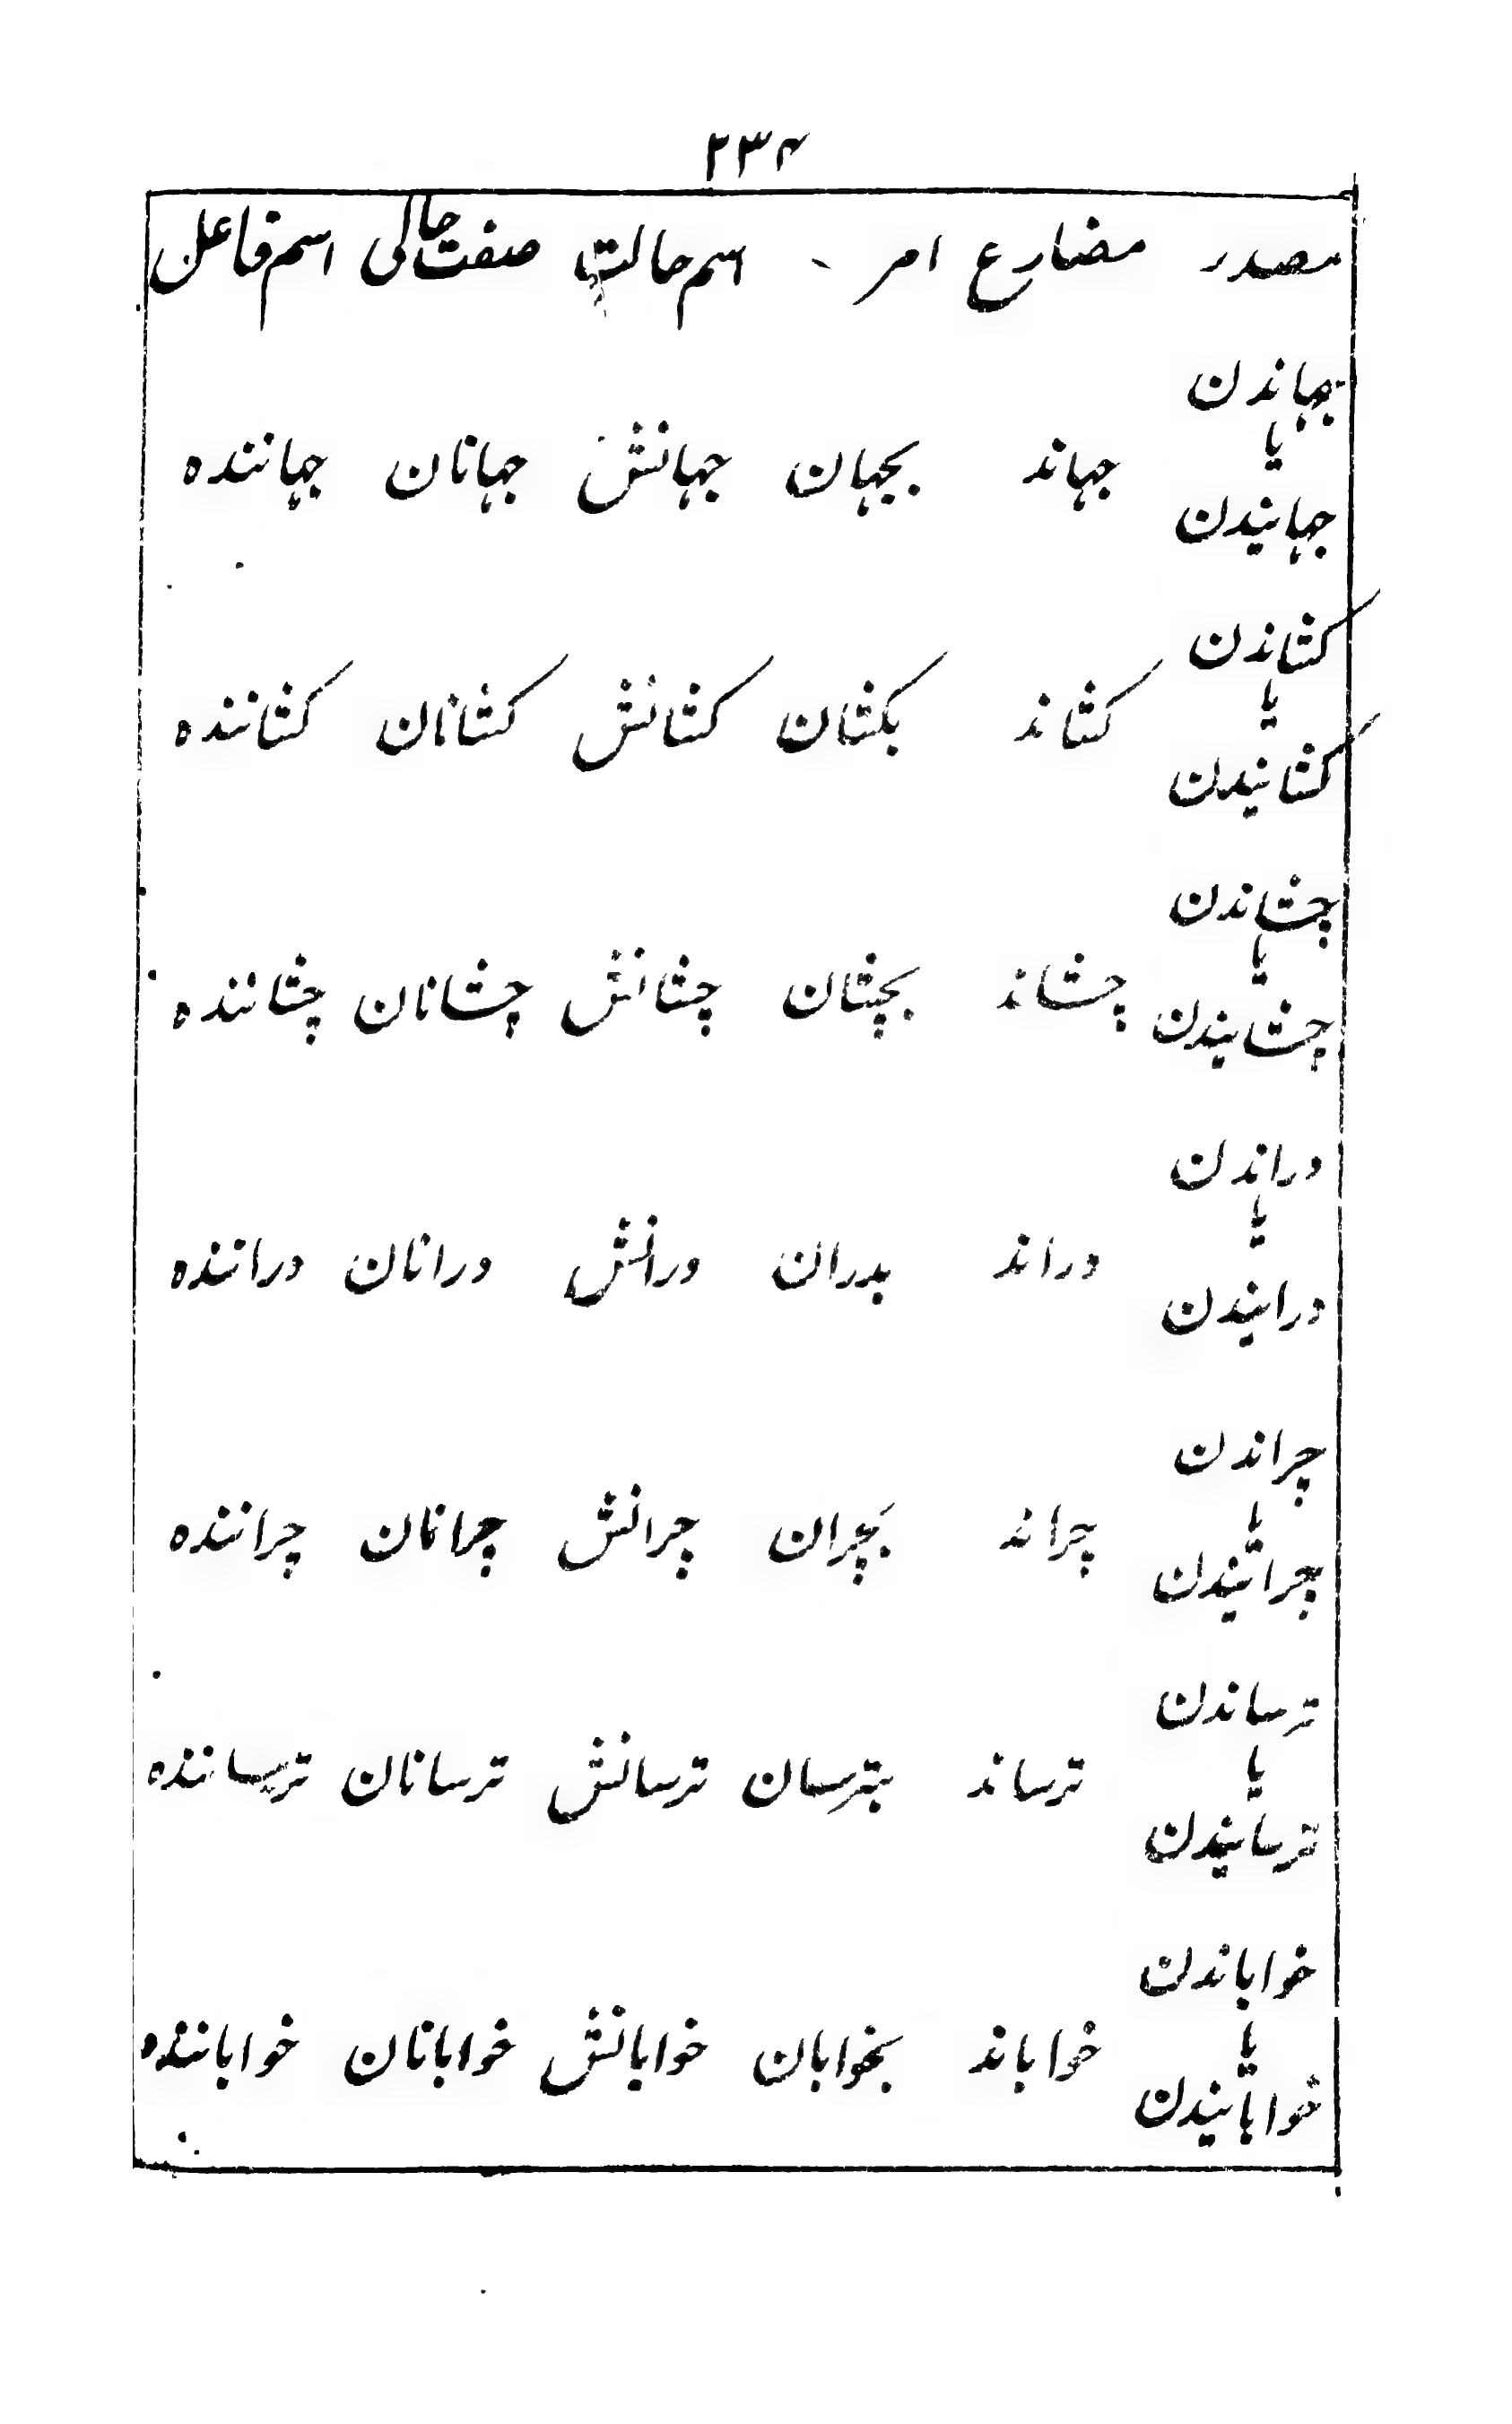 ۲۳۴
مصدر مضارع امر اسم حالت صفت حالی اسم فاعل
جهاندن
یا
جهاند بجهان جهانش جهانان جهاننده
جهانیدن
کشاندن
یا
کشاند بکشان کشانش کشانان کشاننده
کشانیدن
چشاندن
یا
چشاند بچشان چشانش چشانان چشاننده
چشانیدن
دراندن
یا
دراند بدران درانش درانان دراننده
درانیدن
چراندن
یا
چراند بچران چرانش چرانان چراننده
چرانیدن
ترساندن
یا
ترساند بترسان ترسانش ترسانان ترساننده
ترسانیدن
خواباندن
یا
خواباند بخوابان خوابانش خوابانان خواباننده
خوابانیدن